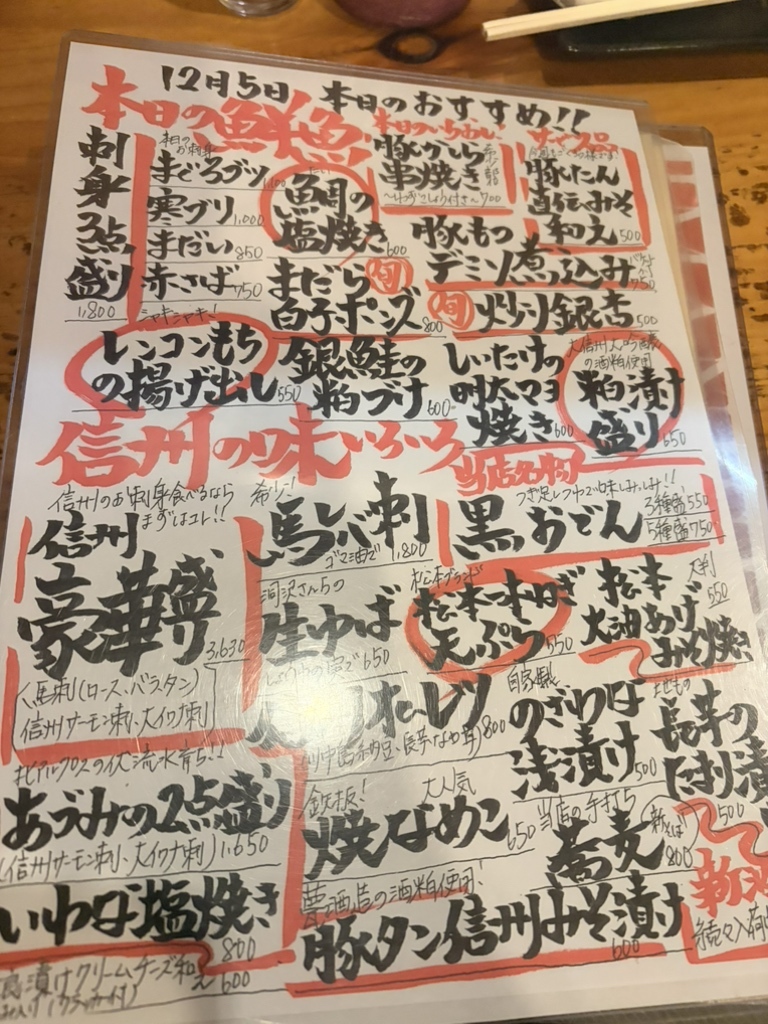 12月5日 本日のおすすめ!!
本日の鮮魚
刺身3点盛り
1,800
本日のお刺身
まぐろブツ
1,100
寒ブリ
1,000
まだい
850
赤さば
750
鯛の
塩焼き
600
まだら
白子ポンズ
800
旬
本日のいちおし!
豚がしら
串焼き
700
豚たん
和え
500
豚もつ
デミソ煮っ込み
750
旬
炒り銀杏
500
シャキシャキ!
レンコンもち
の揚げ出し
550
銀鮭の
粕づけ
600
しいたけの
明太マヨ
焼き
600
の酒粕使用
粕漬け
盛り
650
信州の味いろいろ
信州のお刺身食べるなら
まずはコレ!!
信州
豪華盛り
3,630
馬刺(ロース、バラ、タン)
信州サーモン刺、大イワナ刺
希少!
馬レバ刺
ゴマ油で
1,800
当店名物
つぎ足しつゆで味しみしみ!!
黒おでん
3種盛 550
5種盛 750
洞沢さんちの
生ゆば
650
松本ブランド
松本一本ねぎ
天ぷら
550
大判
550
松本
大油あげ
みそ焼き
オムレツ
800
自家製
のざわな
浅漬け
500
長芋の
たまり漬
500
北アルプスの伏流水育ち!!
あづみの2点盛り
(信州サーモン刺、大イワナ刺) 1,650
鉄板!
大人気
焼なめこ
650
当店の手打ち
蕎麦
新そば
800
いわな塩焼き
800
酒造の酒粕使用!
豚タン信州みそ漬け
600
漬けクリームチーズ和え
600
(クラッカー付)
続々入荷